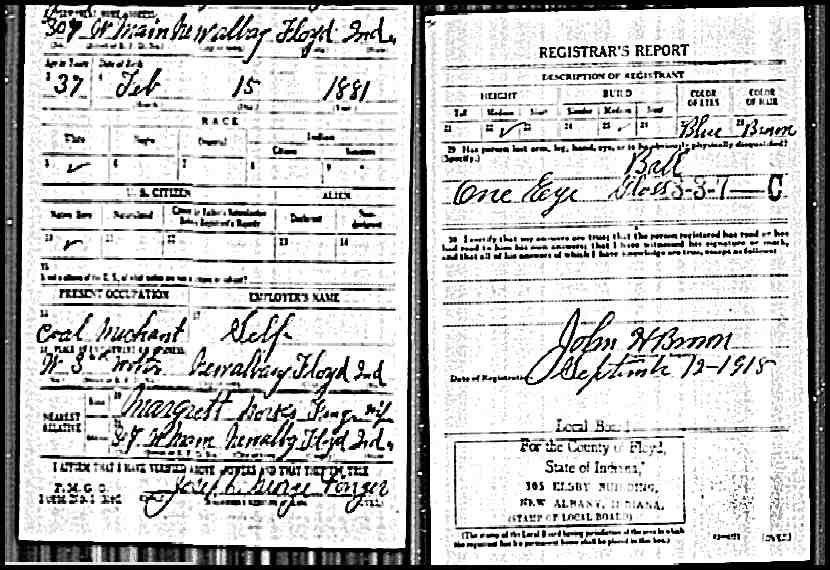 307 W Main Newalbay Floyd Ind,
Age in Years
Date of Birth
37 Feb 15 1881
RACE
White Negro Oriental Indian
Citizen
5 ✓ 6 7 8 9
U. S. CITIZEN ALIEN
Native Born Naturalized Declarant Non-declarant
10 ✓ 11 12 13 14
15
PRESENT OCCUPATION EMPLOYER'S NAME
Coal Self
Newalbany Floyd Ind
NEAREST RELATIVE
Margrett
307 W Main Newalby Floyd Ind,
I AFFIRM THAT I HAVE VERIFIED ABOVE ANSWERS AND THAT THEY ARE TRUE
P. M. G. O.
Joseph George
REGISTRAR'S REPORT
DESCRIPTION OF REGISTRANT
HEIGHT BUILD COLOR OF EYES COLOR OF HAIR
Tall Medium Short Slender Medium Stout
21 22 ✓ 23 24 25 ✓ 26 27 Blue 28 Brown
29 Has person lost arm, leg, hand, eye, or is he obviously physically disqualified?
(Specify.)
Ball
One Eye Glass 3-3-7— C
30 I certify that my answers are true; that the person registered has read or has
had read to him his own answers; that I have witnessed his signature or mark,
and that all of his answers of which I have knowledge are true, except as follows:
John W Brown
Date of Registration September 12-1918
Local Board
For the County of Floyd,
State of Indiana,
305 ELSBY BUILDING,
NEW ALBANY, INDIANA,
(STAMP OF LOCAL BOARD)
(The stamp of the Local Board having jurisdiction of the area in which
the registrant has his permanent home shall be placed in this box.)